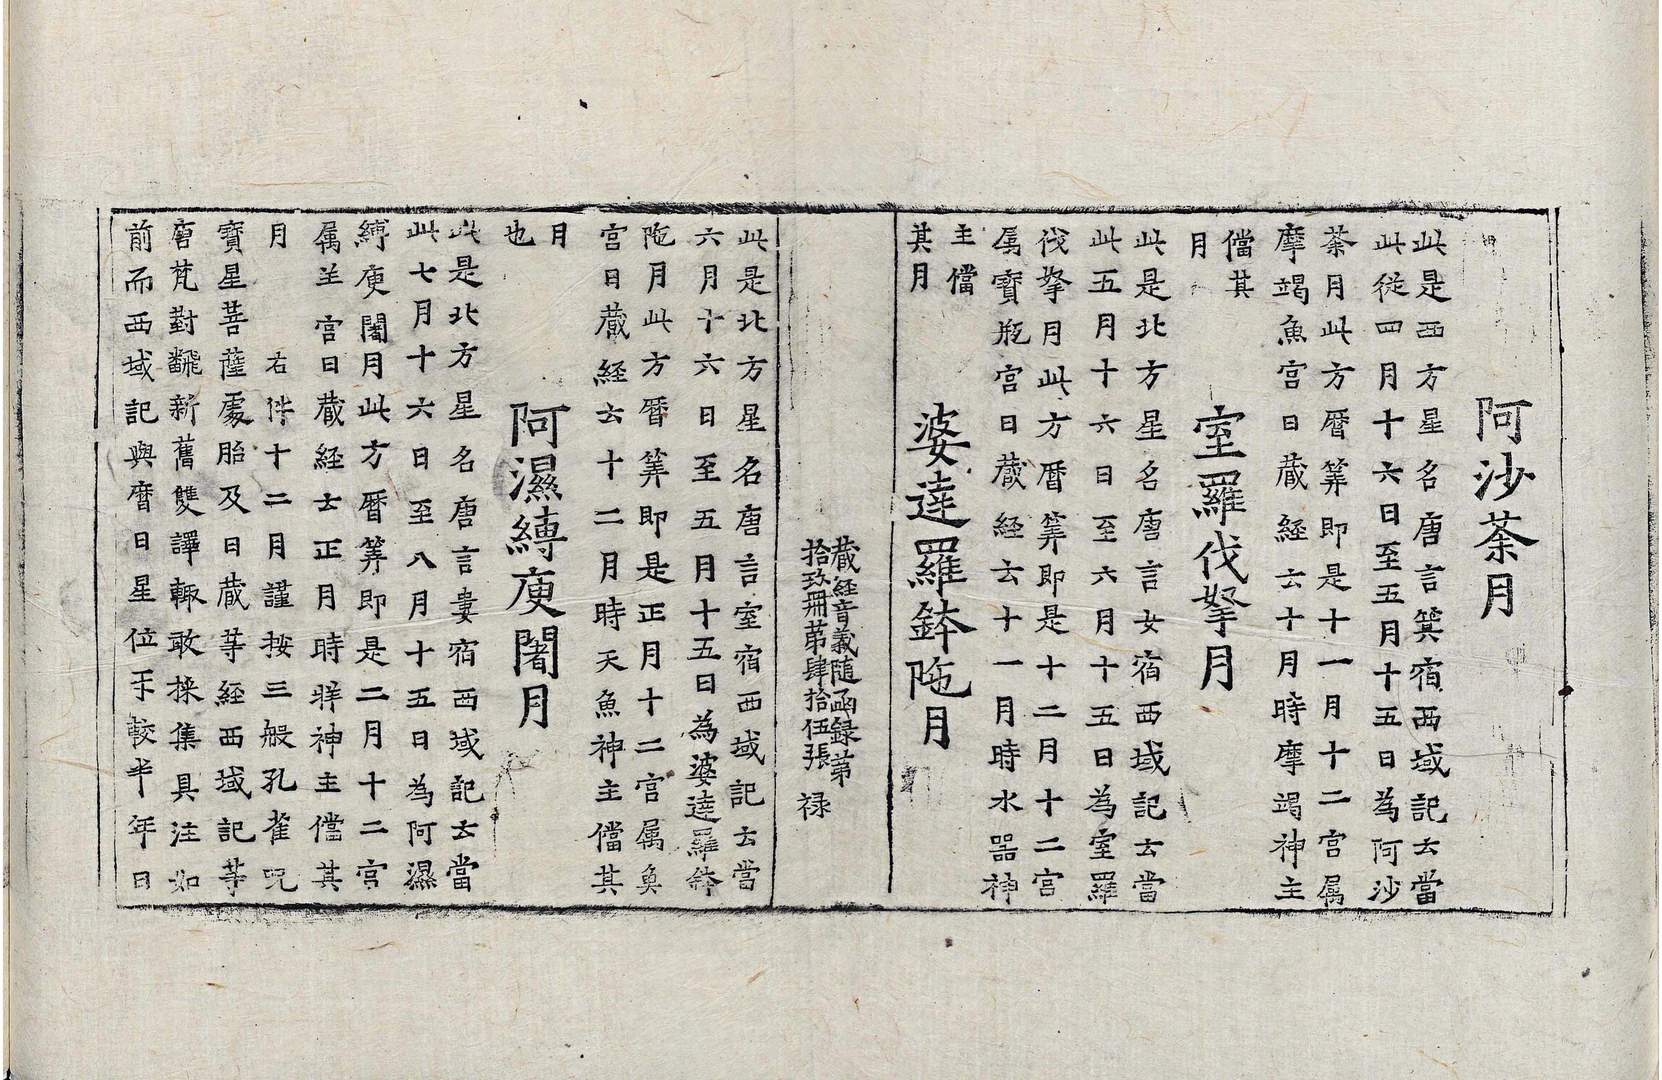 阿沙荼月
此是西方星名唐言箕宿西域記云當
此從四月十六日至五月十五日為阿沙
荼月此方曆筭即是十一月十二宮属
摩竭魚宮日蔵経云十月時摩竭神主
儅其
月
室羅伐拏月
此是北方星名唐言女宿西域記云當
此五月十六日至六月十五日為室羅
伐拏月此方曆筭即是十二月十二宮
属寶瓶宮日蔵経云十一月時水器神
主儅
其月
婆達羅鉢陁月
蔵経音義随函録苐
拾玖冊苐肆拾伍張 禄
此是北方星名唐言室宿西域記云當
六月十六日至五月十五日為婆達羅鉢
陁月此方曆筭即是正月十二宮属奐
宮日蔵経云十二月時天魚神主儅其
月
也
阿濕縛庾闍月
此是北方星名唐言婁宿西域記云當
此七月十六日至八月十五日為阿濕
縛庾闍月此方曆筭即是二月十二宮
属羊宮日蔵経云正月時䍧神主儅其
月 右件十二月謹按三般孔雀呪
寶星菩薩處胎及日蔵等経西域記等
唐梵對飜新舊雙譯輙敢採集具注如
前而西域記與曆日星位不較半年日